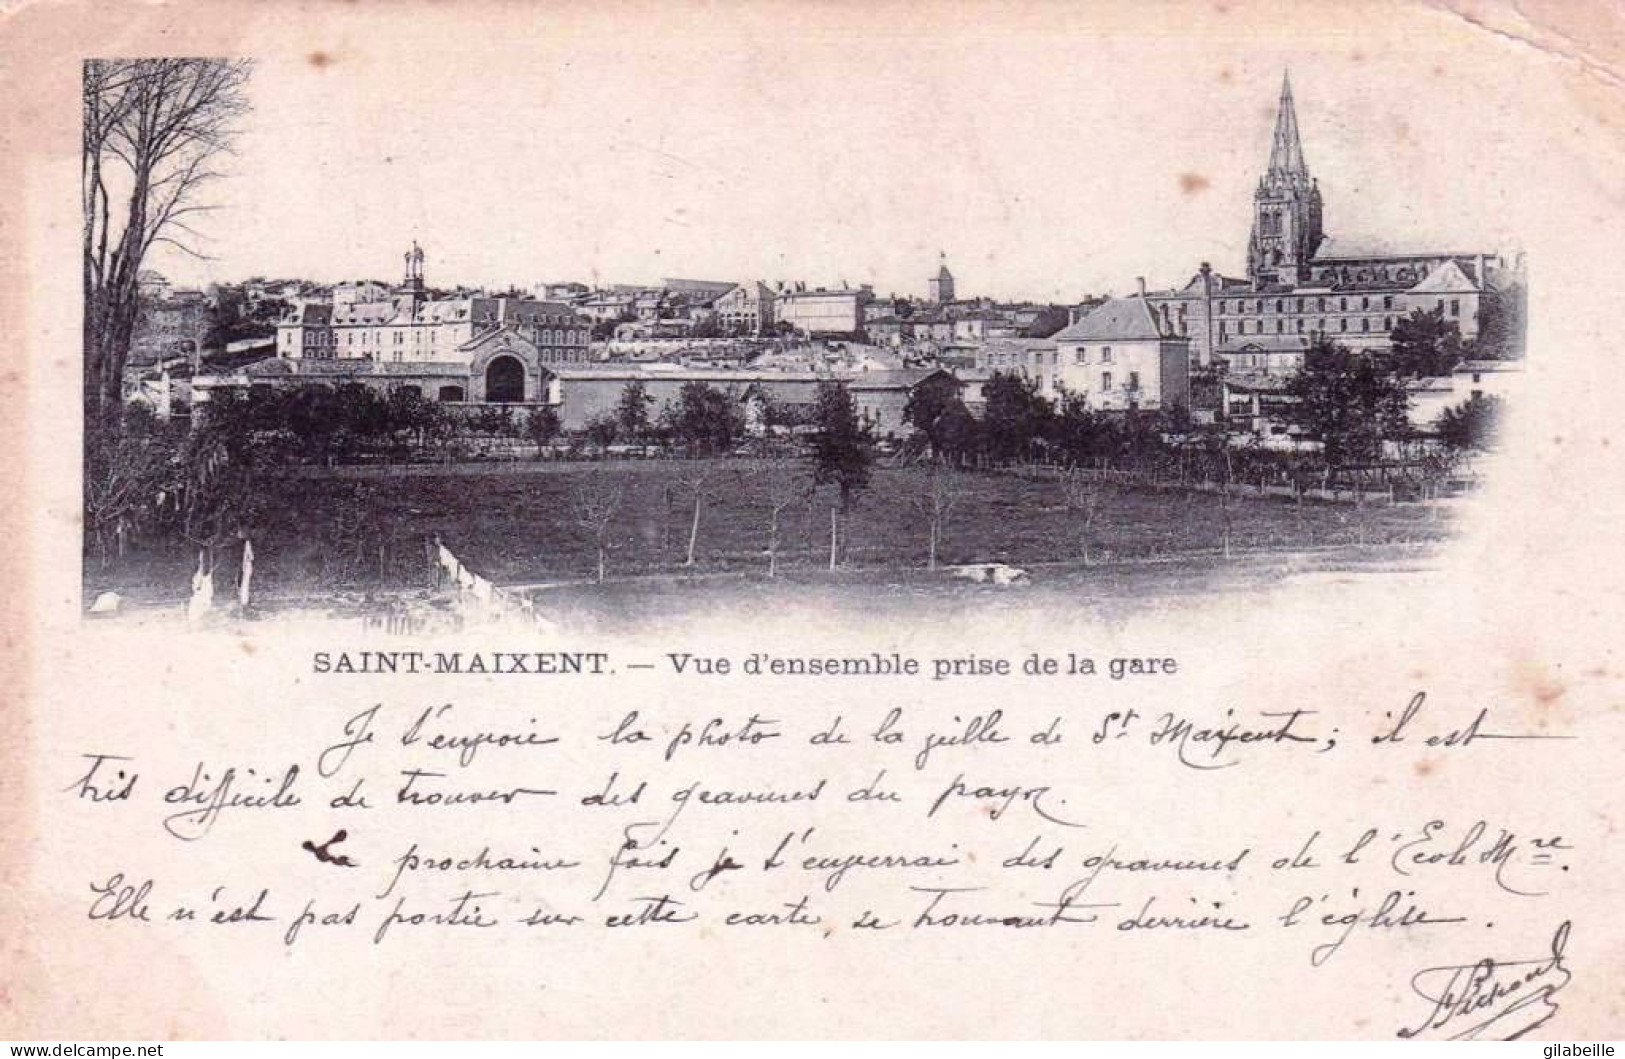 SAINT-MAIXENT. — Vue d'ensemble prise de la gare
Je t'envoie la photo de la ville de St Maixent ; il est
très difficile de trouver des gravures du pays.
La prochaine fois je t'enverrai des gravures de l'École Mre.
Elle n'est pas portée sur cette carte, se trouvant derrière l'église.
www.delcampe.net
gilabeille